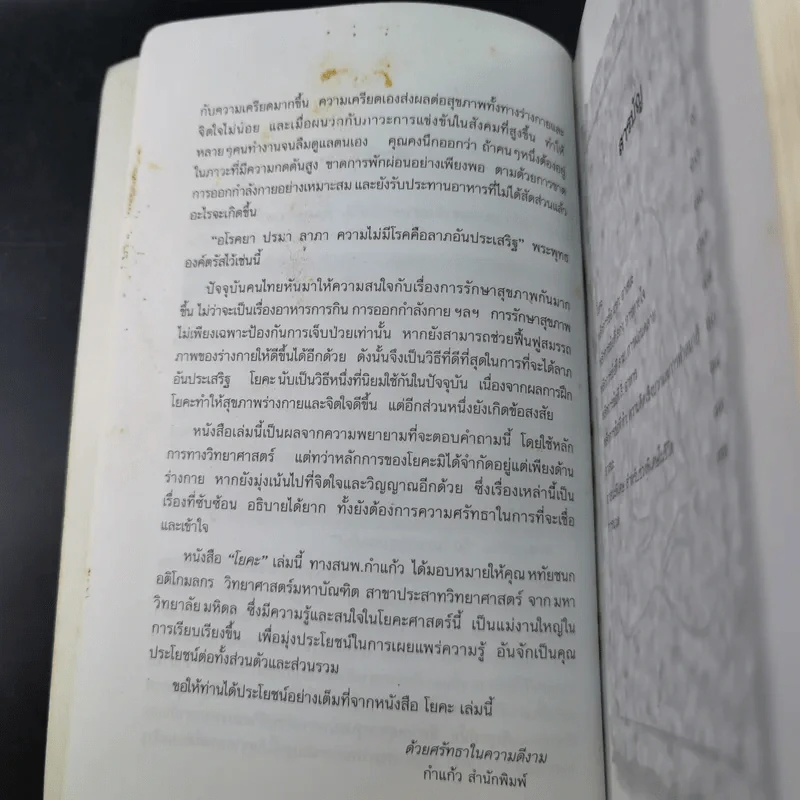 กับความเครียดมากขึ้น ความเครียดเองส่งผลต่อสุขภาพทั้งทางร่างกายและ
จิตใจไม่น้อย และเมื่อผนวกกับภาวะการแข่งขันในสังคมที่สูงขึ้น ทำให้
หลายๆคนทำงานจนลืมดูแลตนเอง คุณคงนึกออกว่า ถ้าคนๆหนึ่งต้องอยู่
ในภาวะที่มีความกดดันสูง ขาดการพักผ่อนอย่างเพียงพอ ตามด้วยการขาด
การออกกำลังกายอย่างเหมาะสม และยังรับประทานอาหารที่ไม่ได้สัดส่วนแล้ว
อะไรจะเกิดขึ้น
"อโรคยา ปรมา ลาภา ความไม่มีโรคคือลาภอันประเสริฐ" พระพุทธ
องค์ตรัสไว้เช่นนี้
ปัจจุบันคนไทยหันมาให้ความสนใจกับเรื่องการรักษาสุขภาพกันมาก
ขึ้น ไม่ว่าจะเป็นเรื่องอาหารการกิน การออกกำลังกาย ฯลฯ การรักษาสุขภาพ
ไม่เพียงเฉพาะป้องกันการเจ็บป่วยเท่านั้น หากยังสามารถช่วยฟื้นฟูสมรรถ
ภาพของร่างกายให้ดีขึ้นได้อีกด้วย ดังนั้นจึงเป็นวิธีที่ดีที่สุดในการที่จะได้ลาภ
อันประเสริฐ โยคะนับเป็นวิธีหนึ่งที่นิยมใช้กันในปัจจุบัน เนื่องจากผลการฝึก
โยคะทำให้สุขภาพร่างกายและจิตใจดีขึ้น แต่อีกส่วนหนึ่งยังเกิดข้อสงสัย
หนังสือเล่มนี้เป็นผลจากความพยายามที่จะตอบคำถามนี้ โดยใช้หลัก
การทางวิทยาศาสตร์ แต่ทว่าหลักการของโยคะมิได้จำกัดอยู่แต่เพียงด้าน
ร่างกาย หากยังมุ่งเน้นไปที่จิตใจและวิญญาณอีกด้วย ซึ่งเรื่องเหล่านี้เป็น
เรื่องที่ซับซ้อน อธิบายได้ยาก ทั้งยังต้องการความศรัทธาในการที่จะเชื่อ
และเข้าใจ
หนังสือ "โยคะ" เล่มนี้ ทางสนพ.กำแก้ว ได้มอบหมายให้คุณ หทัยชนก
อดิโกมลกร วิทยาศาสตร์มหาบัณฑิต สาขาประสาทวิทยาศาสตร์ จาก มหา
วิทยาลัย มหิดล ซึ่งมีความรู้และสนใจในโยคะศาสตร์นี้ เป็นแม่งานใหญ่ใน
การเรียบเรียงขึ้น เพื่อมุ่งประโยชน์ในการเผยแพร่ความรู้ อันจักเป็นคุณ
ประโยชน์ต่อทั้งส่วนตัวและส่วนรวม
ขอให้ท่านได้ประโยชน์อย่างเต็มที่จากหนังสือ โยคะ เล่มนี้
ด้วยศรัทธาในความดีงาม
กำแก้ว สำนักพิมพ์
สารบัญ